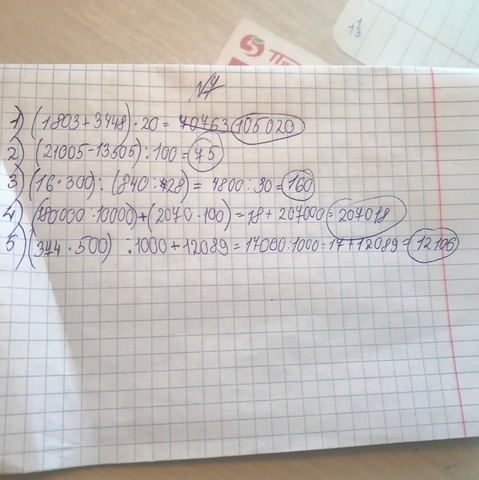 1 1/3
5 П
№4
1) (1803+3448)·20= 70763 105020
2) (21005-13505):100=75
3) (16·300):(840:28)=4800:30=160
4) (180000·10000)+(2070·100)=18+207000=207018
5) (374·500) :1000+12089=17000:1000=17+12089=12106